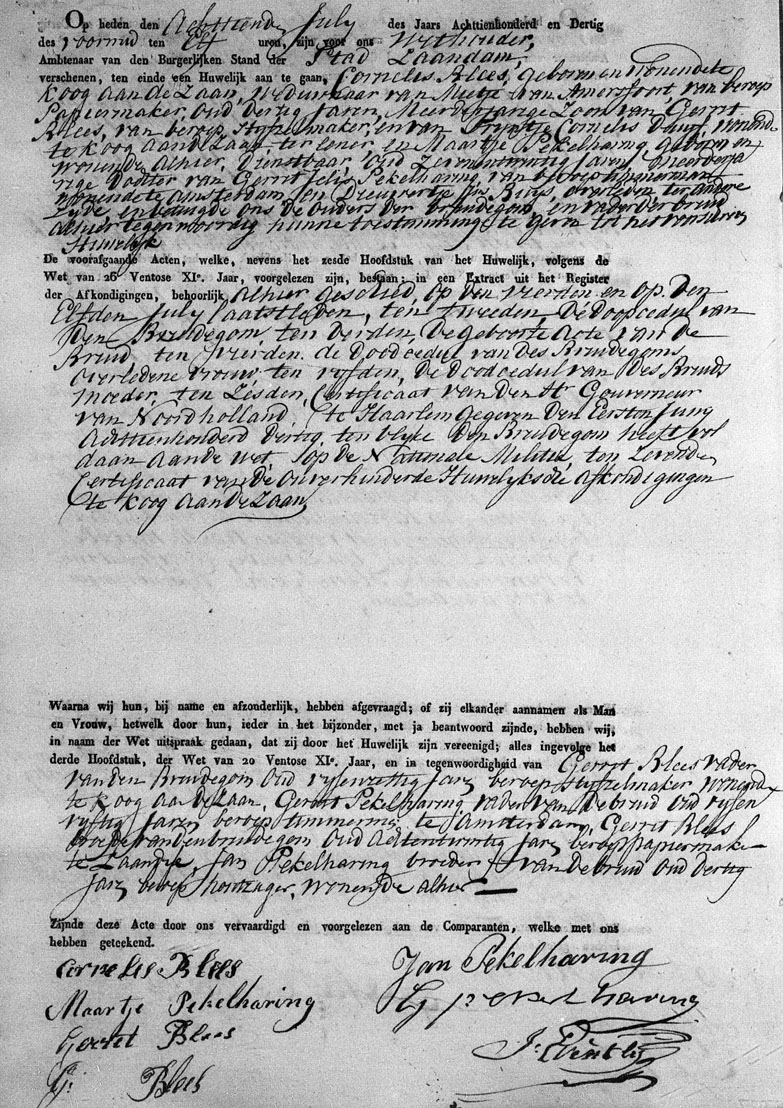 Op heden den Achttiende July des Jaars Achttienhonderd en Dertig
des voormid ten Elf uren, zijn voor ons Wethouder,
Ambtenaar van den Burgerlijken Stand der Stad Zaandam,
verschenen, ten einde een Huwelijk aan te gaan, Cornelis Blees, geboren en wonende te
Koog aan de Zaan, Weduwnaar van Mietje van Amersfoort, van beroep
Papiermaker, oud dertig Jaren, Meerderjarige Zoon van Gerrit
Blees, van beroep, Stijfselmaker, en van Trijntje Cornelis Duijn, wonende
te Koog aan de Zaan ter eener en Maartje Pekelharing geboren en
wonende alhier, Dienstbaar, oud Zevenentwintig Jaren, Meerderja
rige Dochter van Gerrit Jelis Pekelharing, van beroep timmerman
wonende te Amsterdam, en Dieuwertje Buijs, overleden ter andere
Zijde, en betuigde ons de ouders der bruidegom, en vader der bruid
alhier tegenwoordig hunne toestemming te geven tot het voorschreven
Huwelijk
De voorafgaande Acten, welke, nevens het zesde Hoofdstuk van het Huwelijk, volgens de
Wet van 26 Ventose XIe. Jaar, voorgelezen zijn, bestaan: in een Extract uit het Register
der Afkondigingen, behoorlijk alhier geschied, op den vierden en op den
Elfden July laatstleden, ten tweeden, De Doopcedul van
den Bruidegom, ten derden, De geboorte Acte van de
Bruid ten vierden. de Doodcedul van des Bruidegoms
overledene vrouw, ten vijfden, De doodcedul van des Bruids
moeder, ten Zesden, Certificaat van den Hr Gouverneur
van Noordholland, te Haarlem gegeven den Eersten Juny
Achttienhonderd dertig, ten blyke den Bruidegom heeft vol
daan aan de wet op de Nationale Militie ten Zevende
Certificaat van de onverhinderde Huwelyksche afkondigingen
te Koog aan de Zaan
Waarna wij hun, bij name en afzonderlijk, hebben afgevraagd; of zij elkander aannamen als Man
en Vrouw, hetwelk door hun, ieder in het bijzonder, met ja beantwoord zijnde, hebben wij,
in naam der Wet uitspraak gedaan, dat zij door het Huwelijk zijn vereenigd; alles ingevolge het
derde Hoofdstuk, der Wet van 20 Ventose XIe. Jaar, en in tegenwoordigheid van Gerrit Blees vader
van den Bruidegom oud vijfenzestig Jaren beroep Stijfselmaker wonend
te Koog aan de Zaan, Gerrit Pekelharing vader van de bruid oud vijfen
vijftig Jaren beroep timmerman te Amsterdam, Gerrit Blees
broeder van den bruidegom oud Achtentwintig Jaren beroep papiermaker
te Zaandijk, Jan Pekelharing broeder van de bruid oud dertig
Jaren beroep houtzager, wonende alhier
Zijnde deze Acte door ons vervaardigd en voorgelezen aan de Comparanten, welke met ons
hebben geteekend.
Cornelis Blees
Jan Pekelharing
Maartje Pekelharing
G pekelharing
Gerret Blees
G. Blees